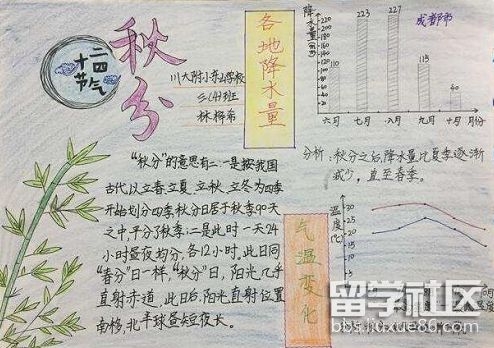 二四
十
节气
秋分
川大附小
林
各地降水量
降水量
220
200
180
160
140
120
100
80
60
40
20
110
223
227
115
40
成都市
六月 七月 八月 九月 十月 月份
分析：秋分之后，降水量比夏季逐渐
减少，直至春季。
“秋分”的意思有二：一是按我国
古代以立春、立夏、立秋、立冬为四季
开始划分四季，秋分日居于秋季90天
之中，平分了秋季；二是此时一天24
小时昼夜均分，各12小时，此日同
“春分”日一样，“秋分”日，阳光几乎
直射赤道，此日后，阳光直射位置
南移，北半球昼短夜长。
气温变化
温度(℃)
30
25
20
15
留学社区
bbs.liuxue86.com